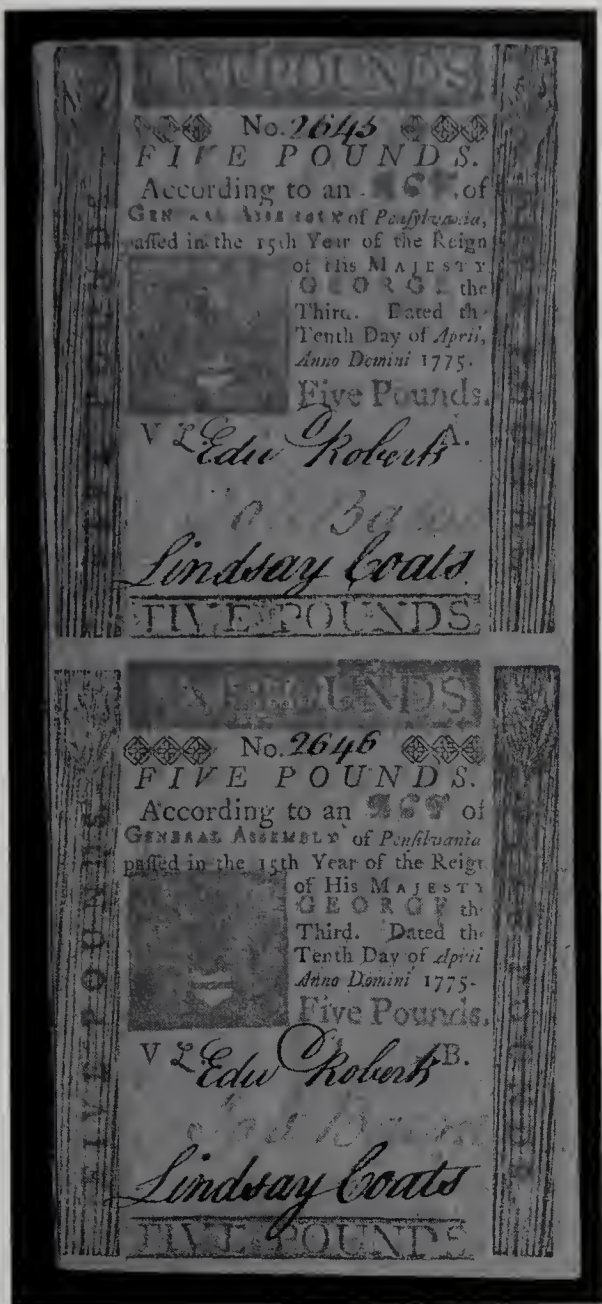 FIVE POUNDS
No. 2645
FIVE POUNDS.
According to an ACT of
GENERAL ASSEMBLY of Pensylvania,
passed in the 15th Year of the Reign
of His MAJESTY
GEORGE the
Third. Dated the
Tenth Day of April,
Anno Domini 1775.
Five Pounds.
V £ A.
Edw Roberts
Lindsay Coats
FIVE POUNDS
FIVE POUNDS
No. 2646
FIVE POUNDS.
According to an ACT of
GENERAL ASSEMBLY of Pensilvania
passed in the 15th Year of the Reign
of His MAJESTY
GEORGE the
Third. Dated the
Tenth Day of April
Anno Domini 1775.
Five Pounds.
V £ B.
Edw Roberts
Lindsay Coats
FIVE POUNDS
FIVE POUNDS